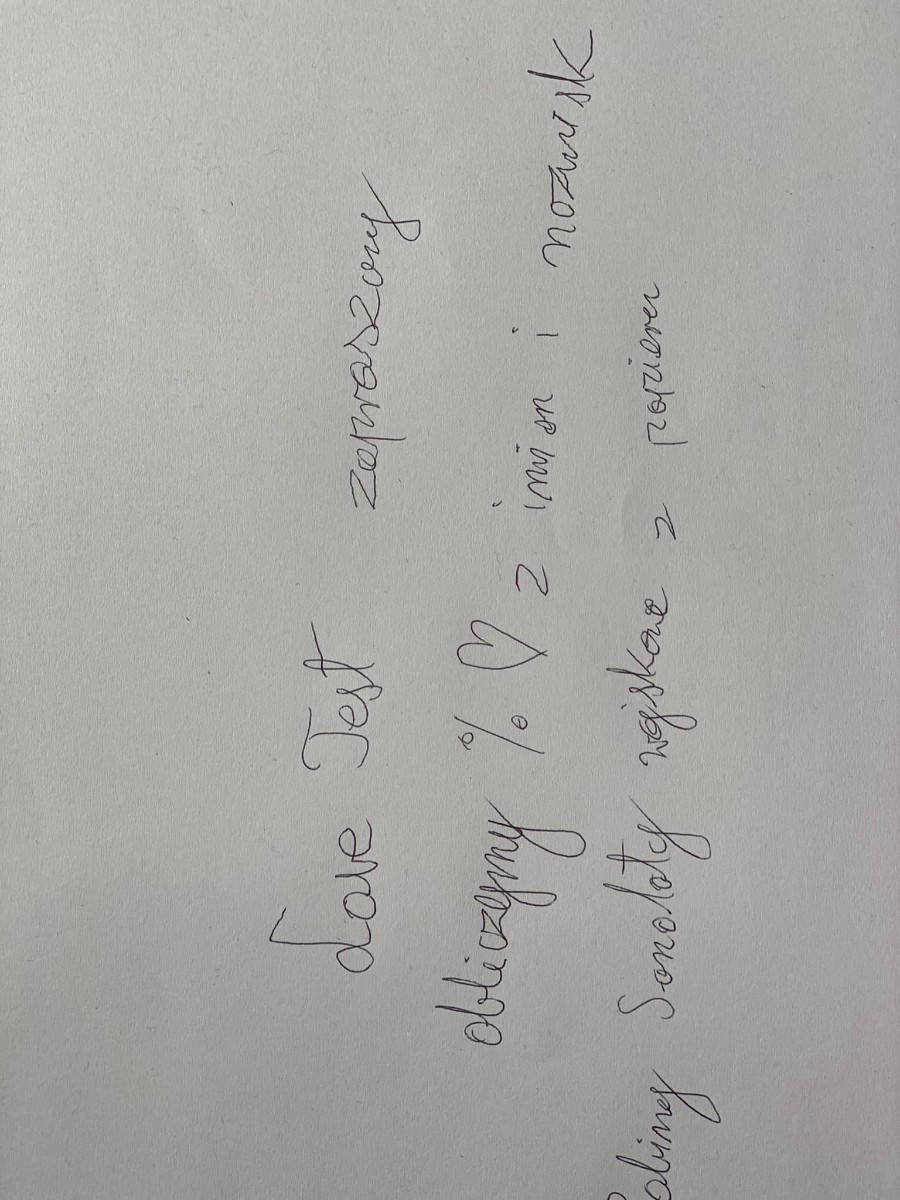 Love Test zapraszamy
obliczymy % ♡ z imion i nazwisk
Robimy Samoloty wojskowe z papieru